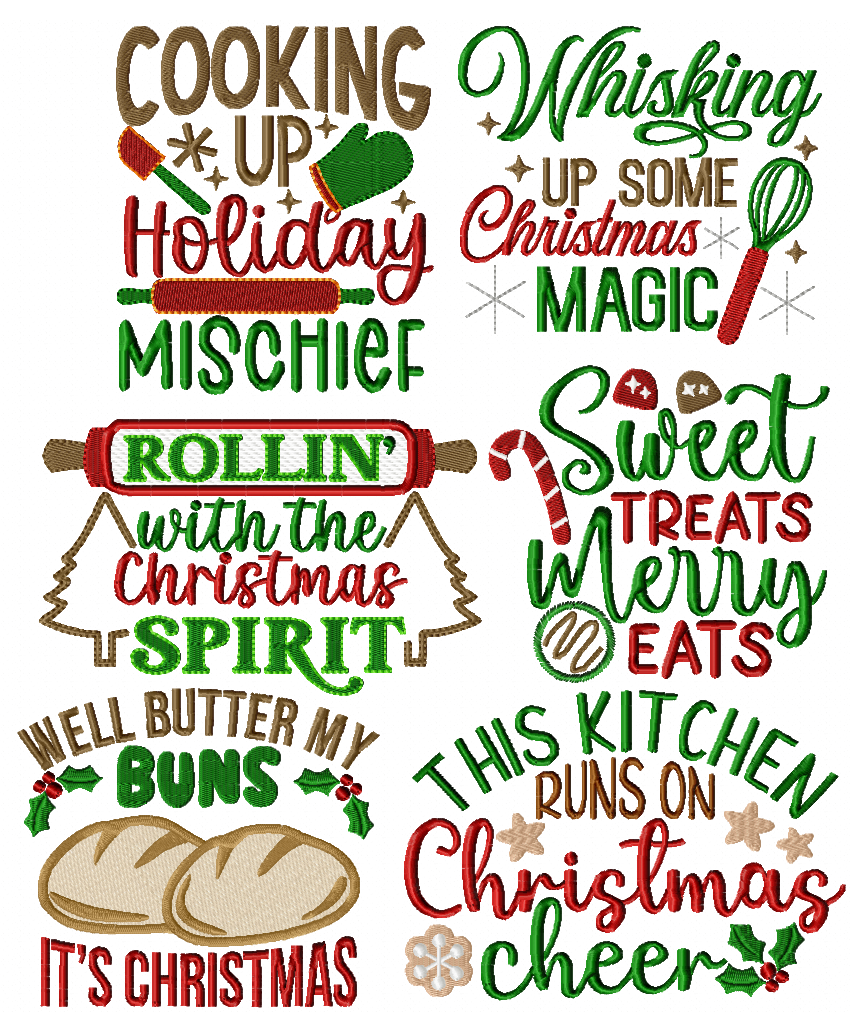 COOKING
UP
Holiday
MISCHIEF
Whisking
UP SOME
Christmas
MAGIC
ROLLIN'
with the
Christmas
SPIRIT
Sweet
TREATS
Merry
EATS
WELL BUTTER MY
BUNS
IT'S CHRISTMAS
THIS KITCHEN
RUNS ON
Christmas
cheer